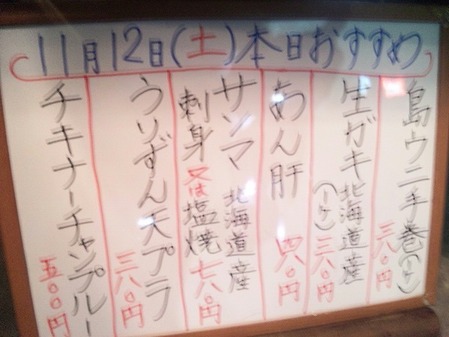 11月12日(土)本日おすすめ
島ウニ手巻(一ケ)
三八〇円
生ガキ北海道産
(一ケ)三八〇円
あん肝
四八〇円
サンマ北海道産
刺身又は塩焼
七八〇円
うりずん天プラ
三八〇円
チキナーチャンプルー
五〇〇円